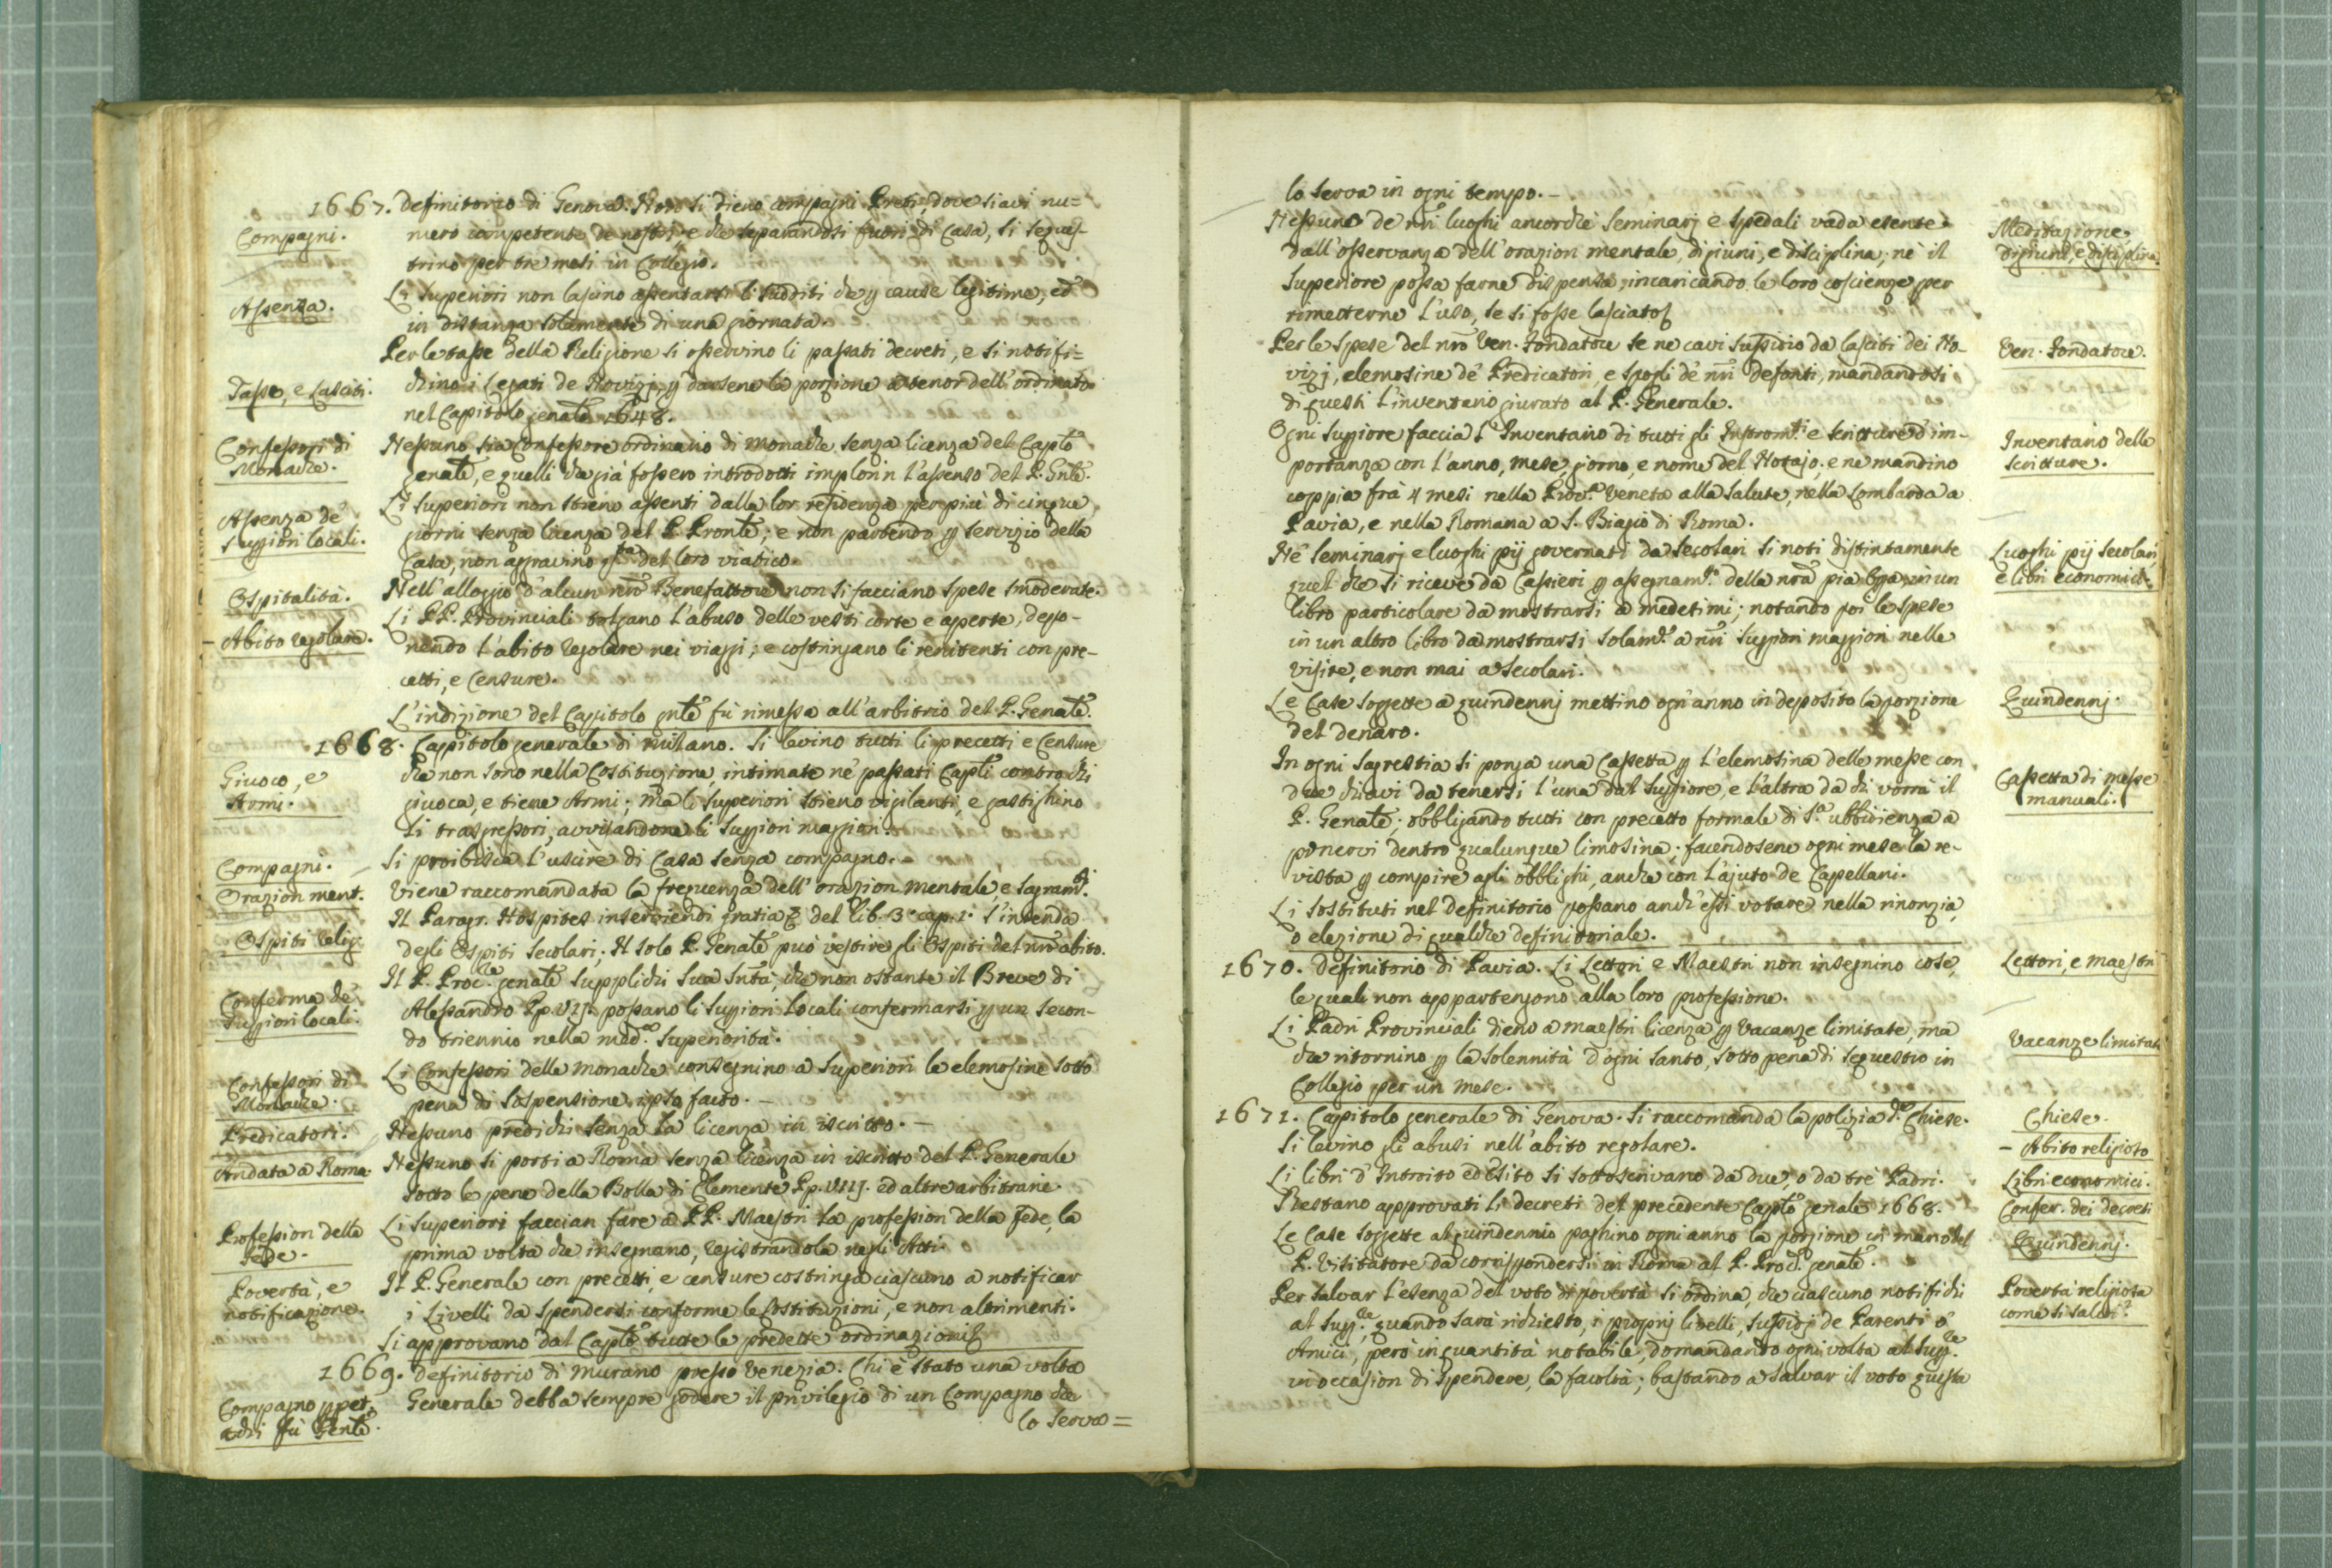 1667. Definitorio di Genova. Non si dieno compagni Preti, dove siavi nu=
Compagni.
mero competente de nostri, e che separandosi fuori di Casa, si seques-
trino per tre mesi in Collegio.
Assenza.
Li Superiori non lascino assentarsi li sudditi che p cause legitime, ed
in distanza solamente di una giornata.
Tasse, e Lasciti.
Per le tasse della Religione si osservino li passati decreti, e si notifi=
chino i Legati de Novizj, p darsene la porzione a tenor dell'ordinato
nel Capitolo genãle 1648.
Confessori di
Monache.
Nessuno sia Confessore ordinario di monache senza licenza del Caplõ
genãle, e quelli che già fossero introdotti implorin l'assenso del P. Gnlẽ.
Assenza de'
Suppiori locali.
Li Superiori non stieno assenti dalla lor residenza per più di cinque
giorni senza licenza del P. Pronlẽ; e non partendo p servizio della
Casa, non aggravino qta del loro viatico.
Ospitalità.
Nell'alloggio d'alcun nrõ Benefattore non si facciano spese smoderate.
- Abito regolare.
Li PP. Provinciali tolgano l'abuso delle vesti corte e aperte, depo-
nendo l'abito regolare nei viaggi; e costringano li renitenti con pre-
cetti, e Censure.
L'indizione del Capitolo gnlẽ fù rimessa all'arbitrio del P. Genãle.
1668. Capitolo generale di Milano. Si levino tutti li precetti e Censure
Giuoco, e
Armi.
che non sono nella Costituzione, intimate ne' passati Caplĩ contro chi
giuoca, e tiene Armi; mà li Superiori stieno vigilanti, e gastighino
li trasgressori, avvisandone li Suppiori maggiori.
Compagni.
Si proibisca l'uscire di Casa senza compagno.
Orazion ment.
Viene raccomandata la frequenza dell'orazion mentale e Sagramti.
Ospiti relig.
Il Paragr. Hospites inserviendi gratia & del lib. 3° cap. 1. s'intenda
degli Ospiti secolari; Il solo P. Genãle può vestire gli Ospiti del nrõ abito.
Conferma de'
Suppiori locali.
Il P. Procle genãle supplichi Sua Sntã, che non ostante il Breve di
Alessandro Pp. VIJ. possano li Suppiori locali confermarsi p un secon-
do triennio nella medma superiorità.
Confessori di
Monache.
Li Confessori delle monache consegnino a Superiori le elemosine sotto
pena di sospensione ipso facto. -
Predicatori.
Nessuno predichi senza la licenza in iscritto. -
Andata a Roma.
Nessuno si porti a Roma senza licenza in iscritto del P. Generale
sotto le pene della Bolla di Clemente Pp. VIIJ. ed altre arbitrarie.
Profession della
fede.
Li Superiori faccian fare a PP. Maestri la profession della fede, la
prima volta che insegnano, registrandola negli Atti.
Povertà, e
notificazione.
Il P. Generale con precetti, e censure costringa ciascuno a notificar
i Livelli da spendersi conforme le Costituzioni, e non altrimenti.
Si approvano dal Caplõ tutte le predette ordinazioni.
1669. Definitorio di Murano presso Venezia. Chi è stato una volta
Compagno ppet.
a chi fù Genlẽ.
Generale debba sempre godere il privilegio di un Compagno che
lo serva =
lo serva in ogni tempo. -
Meditazione,
digiuni, e disciplina.
Nessuno de nrĩ luoghi ancorchè Seminarj e Spedali vada esente
dall'osservanza dell'orazion mentale, digiuni, e disciplina; nè il
Superiore possa farne dispensa; incaricando le loro coscienze per
rimetterne l'uso, se si fosse lasciato.
Ven. Fondatore.
Per le spese del nrõ Ven. Fondatore se ne cavi sussidio da lasciti dei No-
vizj, elemosine de' Predicatori, e spogli de' nrĩ defonti, mandandosi
di questi l'inventario giurato al P. Generale.
Inventario delle
scritture.
Ogni Suppiore faccia l'Inventario di tutti gli Instromti e scritture d'im-
portanza con l'anno, mese, giorno, e nome del Notajo; e ne mandino
coppia frà 4 mesi nella Provca Veneta alla Salute, nella Lombarda a
Pavia, e nella Romana a S. Biagio di Roma.
Luoghi pij secolari,
e libri economici.
Ne' Seminarj e luoghi pij governati da Secolari si noti distintamente
quel che si riceve da Cassieri p assegnamto della nrã pia opa, in un
libro particolare da mostrarsi a medesimi; notando poi le spese
in un altro libro da mostrarsi solamte a nrĩ Suppiori maggiori nelle
visite, e non mai a Secolari.
Quindennj.
Le Case soggette a quindennj mettino ogn'anno in deposito la porzione
del denaro.
Cassetta di messe
manuali.
In ogni Sagrestia si ponga una Cassetta p l'elemosina delle messe con
due chiavi da tenersi l'una dal Suppiore, e l'altra da chi vorrà il
P. Genãle; obbligando tutti con precetto formale di Sta ubbidienza a
ponervi dentro qualunque limosina; facendosene ogni mese la re-
vista p compire agli obblighi, anche con l'ajuto de Capellani.
Li sostituti nel definitorio possano anch'essi votare nella rinonzia,
o elezione di qualche definitoriale.
1670. Definitorio di Pavia. Li Lettori e Maestri non insegnino cose,
Lettori, e maestri
le quali non appartengono alla loro professione.
Vacanze limitate
Li Padri Provinciali dieno a maestri licenza p vacanze limitate, ma
che ritornino p la solennità d'ogni Santo, sotto pena di sequestro in
Collegio per un mese.
1671. Capitolo generale di Genova. Si raccomanda la polizia de Chiese.
Chiese.
Si levino gli abusi nell'abito regolare.
- Abito religioso
Li libri d'Introito ed Esito si sottoscrivano da due, o da tre Padri.
Libri economici.
Restano approvati li decreti del precedente Caplõ genale 1668.
Confer. dei decreti
Le Case soggette al quindennio paghino ogni anno la porzione in mano del
Quindennj.
P. Visitatore da corrispondersi in Roma al P. Procre genãle.
Povertà religiosa
come si salvi?
Per salvar l'esenza del voto di povertà si ordina, che ciascuno notifichi
al Suppre, quando sarà richiesto, i proprj livelli, sussidj de Parenti o
Amici, però in quantità notabile, domandando ogni volta al Suppre
in occasion di spendere, la facoltà; bastando a salvar il voto questa